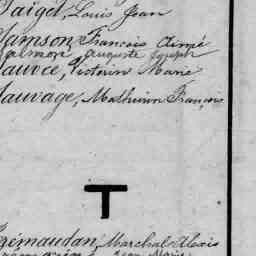 Louis Jean
Samson, François Aimé
Auguste Joseph
Sauvée, Victorin Marie
Sauvage, Mathurin François
T
Trémaudan, Marchal Alexis
Jean Marie